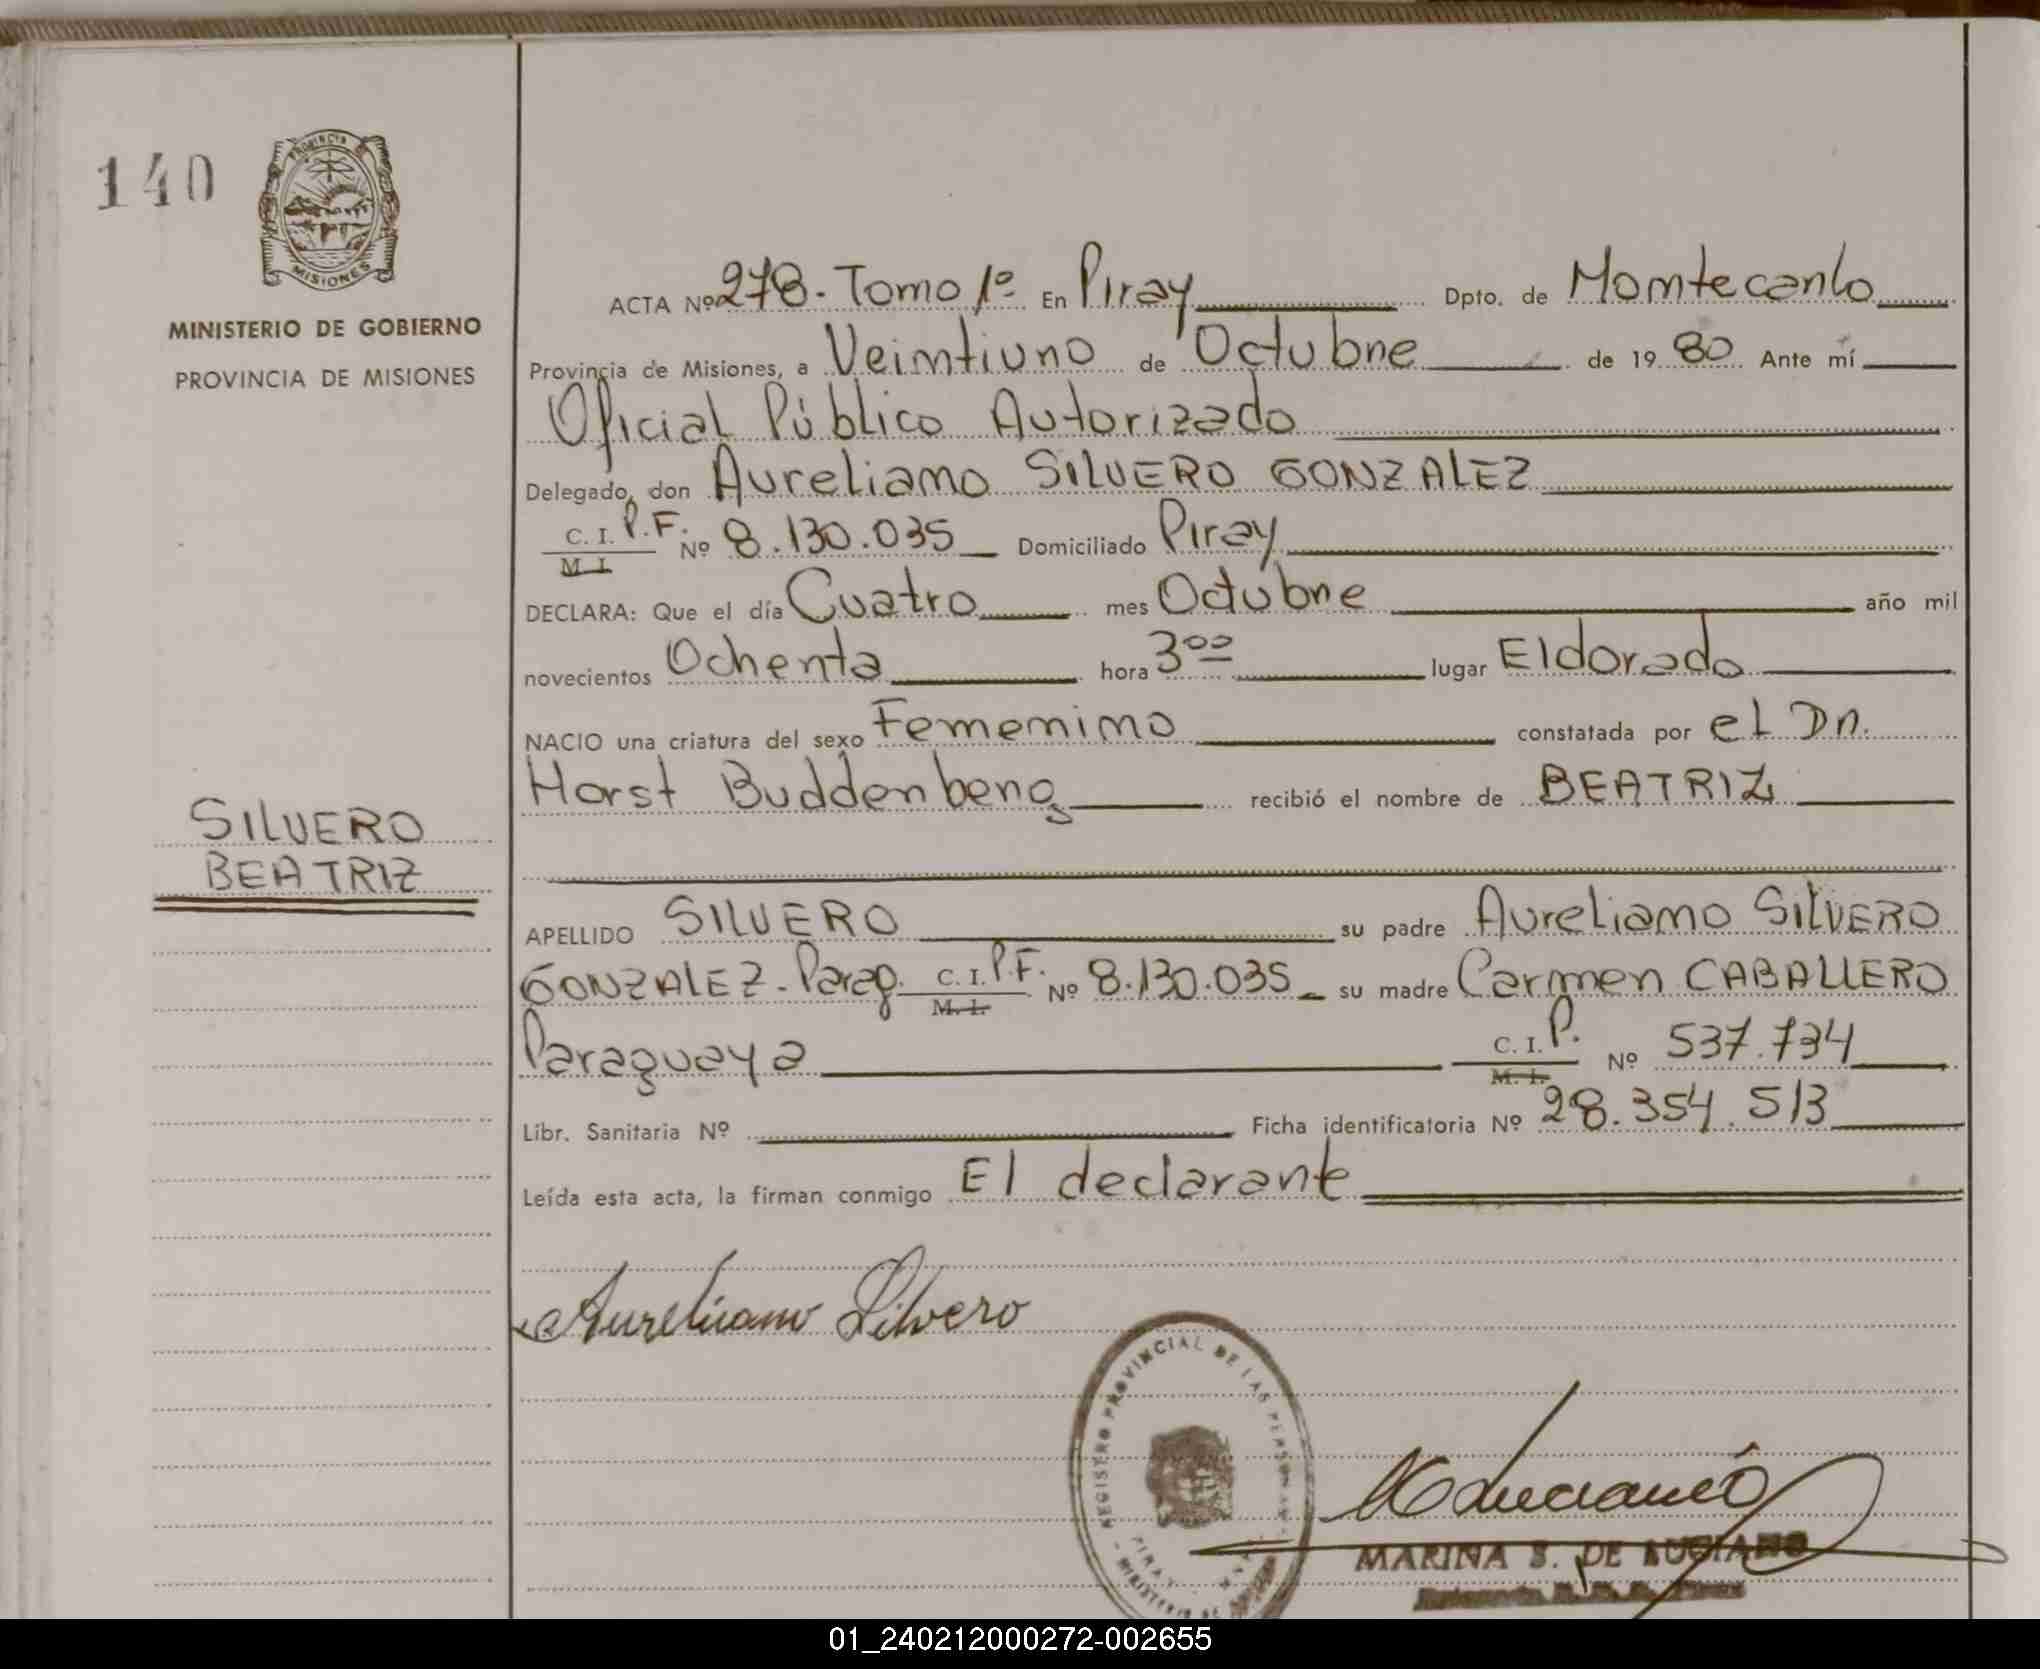 140
PROVINCIA
MISIONES
MINISTERIO DE GOBIERNO
PROVINCIA DE MISIONES
SILVERO
BEATRIZ
ACTA Nº 278. Tomo 1º En Piray Dpto. de Montecarlo
Provincia de Misiones, a Veintiuno de Octubre de 1980 Ante mí
Oficial Público Autorizado
Delegado, don Aureliano SILVERO GONZALEZ
C. I. P.F. Nº 8.130.035 Domiciliado Piray
M. I.
DECLARA: Que el día Cuatro mes Octubre año mil
novecientos Ochenta hora 3ºº lugar Eldorado
NACIO una criatura del sexo Femenino constatada por el Dr.
Horst Buddenberg recibió el nombre de BEATRIZ
APELLIDO SILVERO su padre Aureliano SILVERO
GONZALEZ - Parag. C. I. P.F. Nº 8.130.035 su madre Carmen CABALLERO
M. I.
Paraguaya C. I. P. Nº 537.734
M. I.
Libr. Sanitaria Nº Ficha identificatoria Nº 28.354.513
Leída esta acta, la firman conmigo El declarante
Aureliano Silvero
REGISTRO PROVINCIAL DE LAS PERSONAS - MINISTERIO DE
PIRAY
MARINA S. DE LUCIANO
01_240212000272-002655